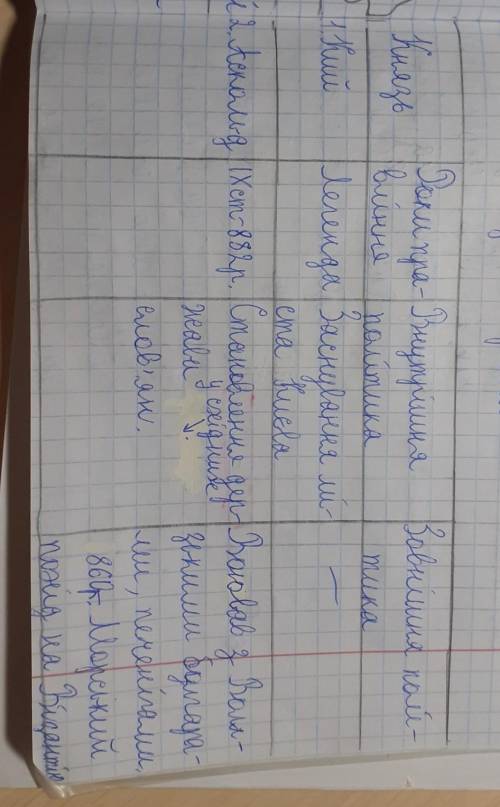 Князь
Роки пра-
вління
Внутрішня
політика
Зовнішня полі-
тика
1. Кий
Легенда
Заснування мі-
ста Києва
—
2. Аскольд
IXст-882р.
Становлення дер-
жави у східних
слов'ян.
Воював з Вол-
зькими болгара-
ми, печенігами,
860р. Морський
похід на Візантію